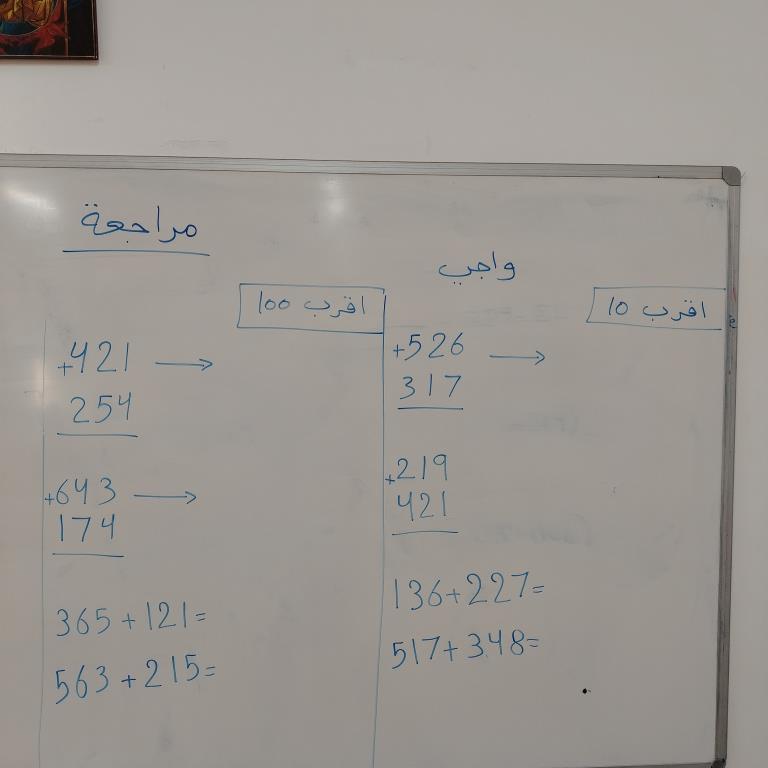 مراجعة
واجبي
اقرب 10
+526 →
317
+219
421
136+227=
517+348=
اقرب 100
+421 →
254
+643 →
174
365+121=
563+215=